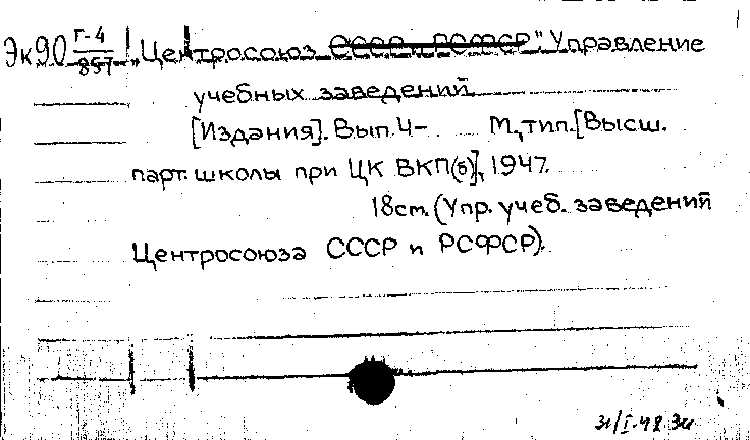 Эк90 Г-4/857 „Центросоюз СССР и РСФСР". Управление
учебных заведений.
[Издания]. Вып. 4- .... М., тип. [Высш.
парт. школы при ЦК ВКП(б)], 1947.
18 см. (Упр. учеб. заведений
Центросоюза СССР и РСФСР).
31/I-48